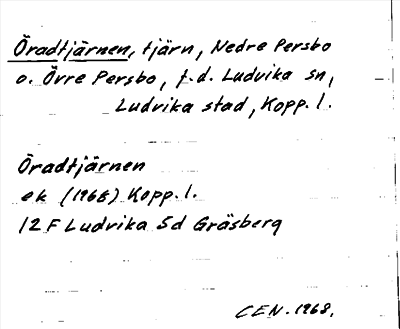 Öradtjärnen, tjärn, Nedre Persbo
o. Övre Persbo, f.d. Ludvika sn,
Ludvika stad, Kopp. l.
Öradtjärnen
ek (1968) Kopp. l.
12 F Ludvika 5d Gräsberg
CEN. 1968.